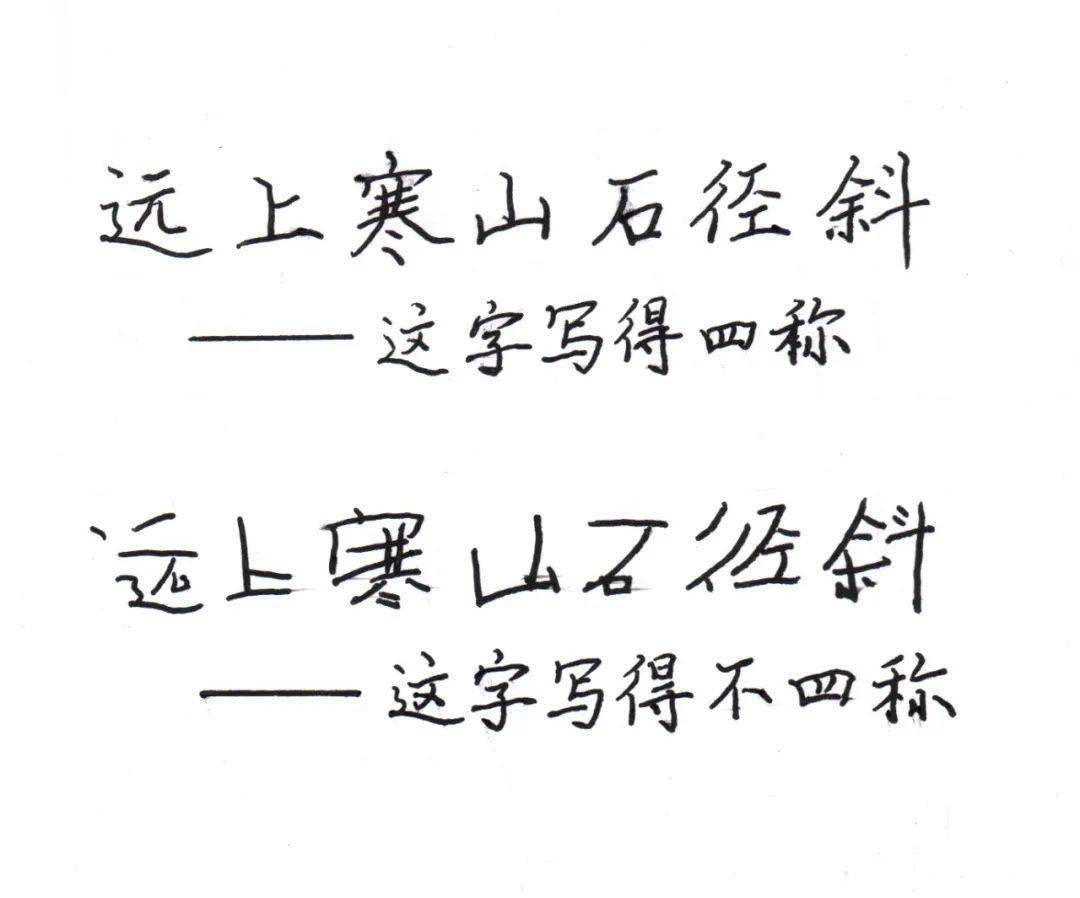 远上寒山石径斜
——这字写得四称
远上寒山石径斜
——这字写得不四称